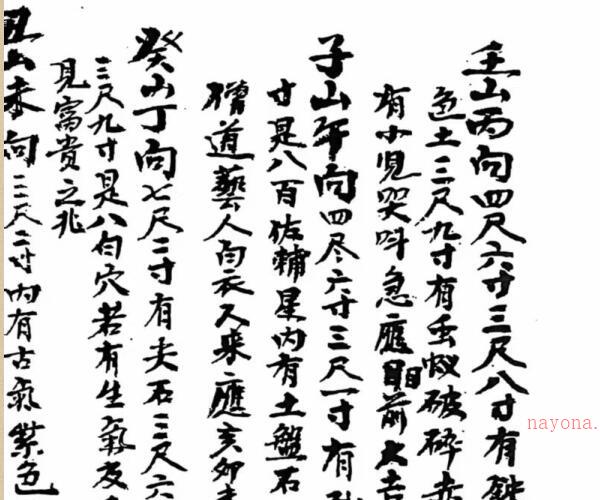 壬山丙向四尺六寸三尺八寸有
色土三尺九寸有虫蚁破碎赤
有小児哭呌急應眼前大吉
子山午向四尺六寸三尺一寸有
寸是八百佐輔星内有土盤石
僧道藝人白衣人来應亥卯
癸山丁向七尺二寸有夫石三尺六
三尺九寸是八白穴若有生氣友
見富貴之兆
丑山未向三尺二寸内有古氣紫色
nayona.